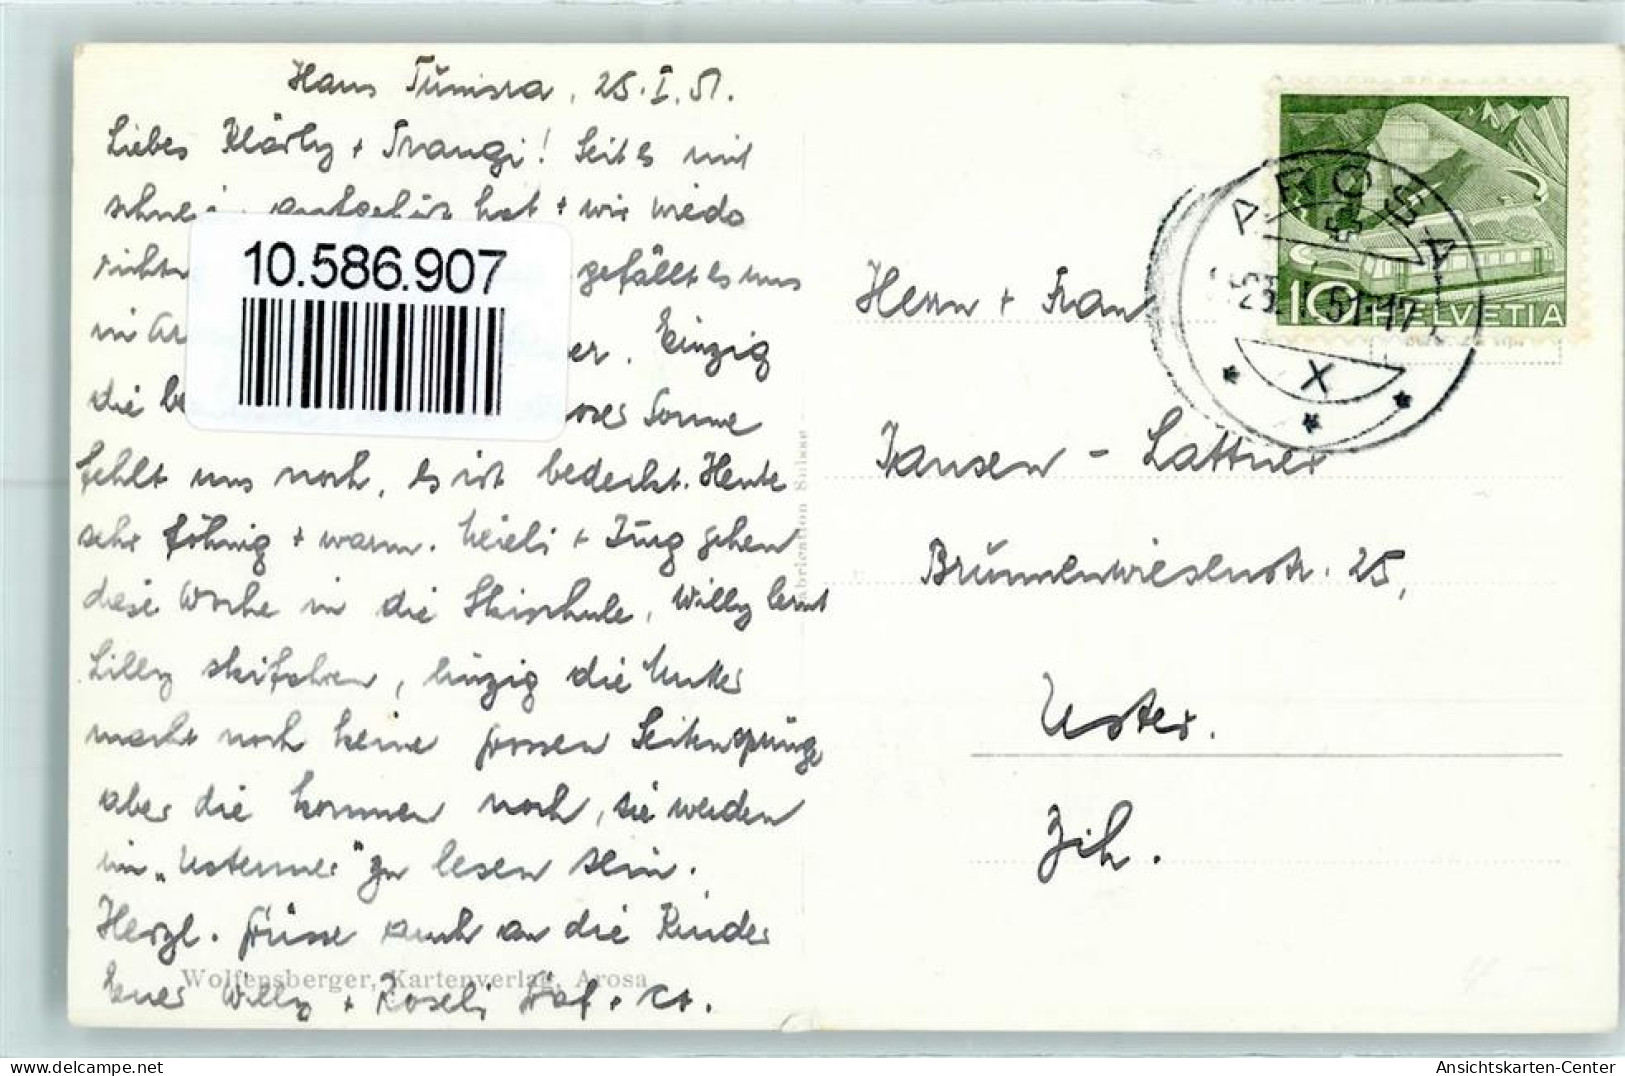 Haus Tūmisra, 25.I.51.
Liebes Klärly + Frangi! Seit es mit
schnei hat + wir wieder
gefällt es uns
in Ar er. Einzig
die be Sonne
fehlt uns noch, es ist bedeckt. Heute
sehr föhnig + warm. Heieli + Jürg gehen
diese Woche in die Skischule, Willy lernt
Lilly skifahren, einzig die Mutter
macht noch keine grossen Seitensprünge
aber die kommen noch, sie werden
im „Ustermer" zu lesen sein.
Herzl. Grüsse auch an die Kinder
Euer Willy + Roseli Graf +
10.586.907
Wolfensberger, Kartenverlag, Arosa
Fabrication Suisse
AROSA
51-17
X
10 HELVETIA
Herrn + Frau
Jansen - Lattner
Brūnnenwiesenstr. 25,
Uster.
Zch.
Ansichtskarten-Center